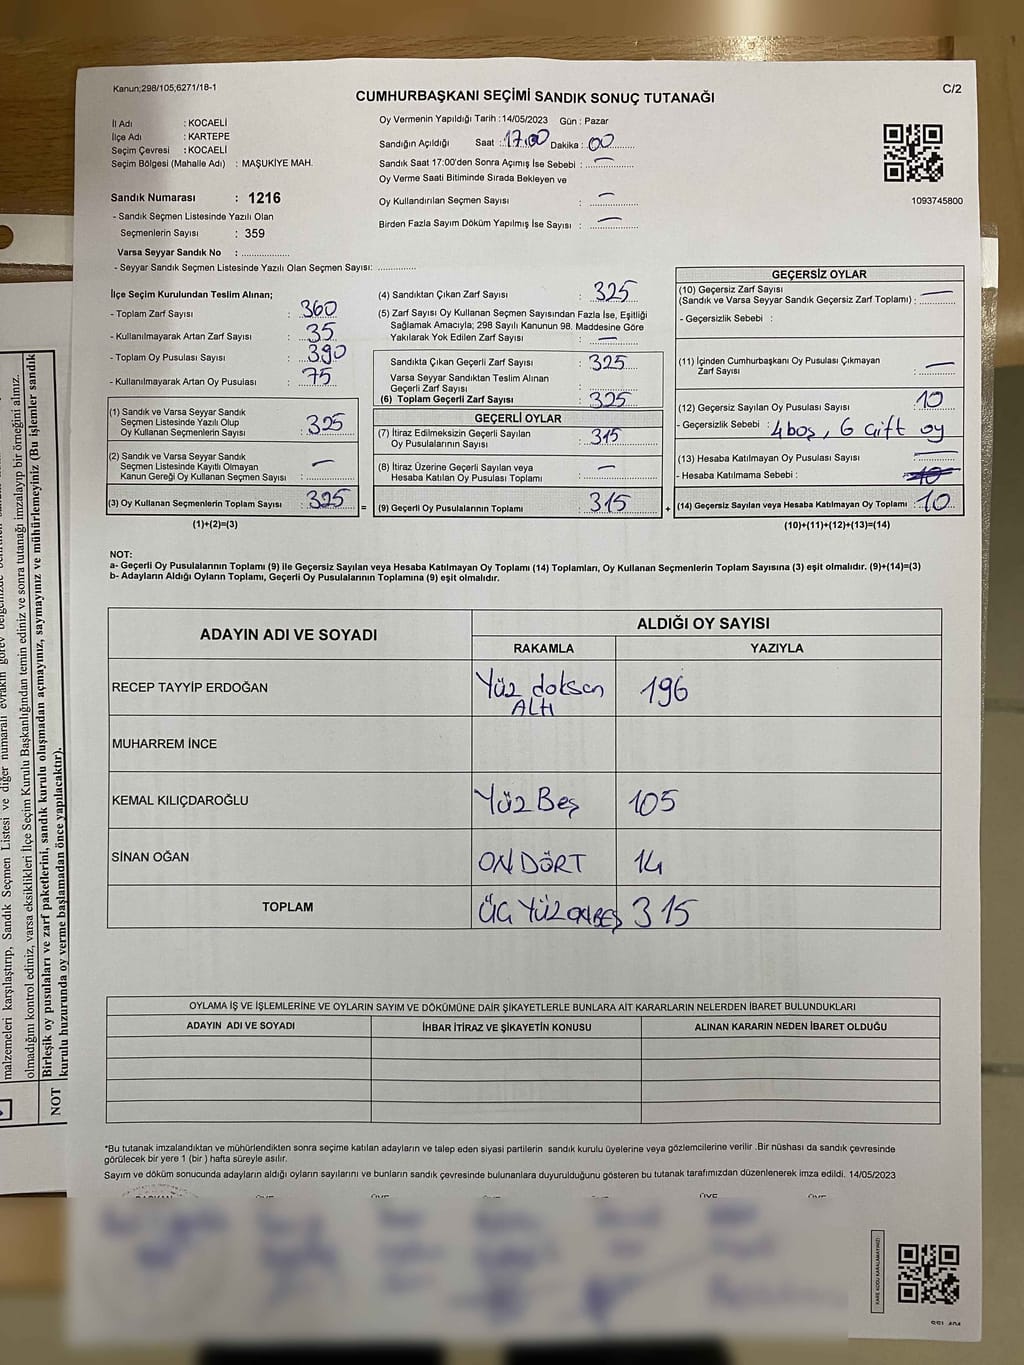 Kanun;298/105,6271/18-1
C/2
CUMHURBAŞKANI SEÇİMİ SANDIK SONUÇ TUTANAĞI
İl Adı : KOCAELİ
İlçe Adı : KARTEPE
Seçim Çevresi : KOCAELİ
Seçim Bölgesi (Mahalle Adı) : MAŞUKİYE MAH.
Oy Vermenin Yapıldığı Tarih :14/05/2023 Gün : Pazar
Sandığın Açıldığı Saat :17.00 Dakika : 00
Sandık Saat 17:00'den Sonra Açımış İse Sebebi : —
Oy Verme Saati Bitiminde Sırada Bekleyen ve
Oy Kullandırılan Seçmen Sayısı : —
Birden Fazla Sayım Döküm Yapılmış İse Sayısı : —
1093745800
Sandık Numarası : 1216
- Sandık Seçmen Listesinde Yazılı Olan
Seçmenlerin Sayısı : 359
Varsa Seyyar Sandık No : ................
- Seyyar Sandık Seçmen Listesinde Yazılı Olan Seçmen Sayısı: .............
İlçe Seçim Kurulundan Teslim Alınan;
- Toplam Zarf Sayısı : 360
- Kullanılmayarak Artan Zarf Sayısı : 35
- Toplam Oy Pusulası Sayısı : 390
- Kullanılmayarak Artan Oy Pusulası : 75
(1) Sandık ve Varsa Seyyar Sandık
Seçmen Listesinde Yazılı Olup
Oy Kullanan Seçmenlerin Sayısı : 325
(2) Sandık ve Varsa Seyyar Sandık
Seçmen Listesinde Kayıtlı Olmayan
Kanun Gereği Oy Kullanan Seçmen Sayısı : —
(3) Oy Kullanan Seçmenlerin Toplam Sayısı : 325
(1)+(2)=(3)
(4) Sandıktan Çıkan Zarf Sayısı : 325
(5) Zarf Sayısı Oy Kullanan Seçmen Sayısından Fazla İse, Eşitliği
Sağlamak Amacıyla; 298 Sayılı Kanunun 98. Maddesine Göre
Yakılarak Yok Edilen Zarf Sayısı : —
Sandıkta Çıkan Geçerli Zarf Sayısı : 325
Varsa Seyyar Sandıktan Teslim Alınan
Geçerli Zarf Sayısı :
(6) Toplam Geçerli Zarf Sayısı : 325
GEÇERLİ OYLAR
(7) İtiraz Edilmeksizin Geçerli Sayılan
Oy Pusulalarının Sayısı : 315
(8) İtiraz Üzerine Geçerli Sayılan veya
Hesaba Katılan Oy Pusulası Toplamı : —
= (9) Geçerli Oy Pusulalarının Toplamı : 315
GEÇERSİZ OYLAR
(10) Geçersiz Zarf Sayısı
(Sandık ve Varsa Seyyar Sandık Geçersiz Zarf Toplamı) : —
- Geçersizlik Sebebi :
(11) İçinden Cumhurbaşkanı Oy Pusulası Çıkmayan
Zarf Sayısı : —
(12) Geçersiz Sayılan Oy Pusulası Sayısı : 10
- Geçersizlik Sebebi : 4 boş, 6 çift oy
(13) Hesaba Katılmayan Oy Pusulası Sayısı : —
- Hesaba Katılmama Sebebi :
+ (14) Geçersiz Sayılan veya Hesaba Katılmayan Oy Toplamı : 10
(10)+(11)+(12)+(13)=(14)
NOT:
a- Geçerli Oy Pusulalarının Toplamı (9) ile Geçersiz Sayılan veya Hesaba Katılmayan Oy Toplamı (14) Toplamları, Oy Kullanan Seçmenlerin Toplam Sayısına (3) eşit olmalıdır. (9)+(14)=(3)
b- Adayların Aldığı Oyların Toplamı, Geçerli Oy Pusulalarının Toplamına (9) eşit olmalıdır.
ADAYIN ADI VE SOYADI
ALDIĞI OY SAYISI
RAKAMLA YAZIYLA
RECEP TAYYİP ERDOĞAN Yüz doksan ALTI 196
MUHARREM İNCE
KEMAL KILIÇDAROĞLU Yüz Beş 105
SİNAN OĞAN ON DÖRT 14
TOPLAM ÜÇ YÜZ ONBEŞ 315
OYLAMA İŞ VE İŞLEMLERİNE VE OYLARIN SAYIM VE DÖKÜMÜNE DAİR ŞİKAYETLERLE BUNLARA AİT KARARLARIN NELERDEN İBARET BULUNDUKLARI
ADAYIN ADI VE SOYADI İHBAR İTİRAZ VE ŞİKAYETİN KONUSU ALINAN KARARIN NEDEN İBARET OLDUĞU
*Bu tutanak imzalandıktan ve mühürlendikten sonra seçime katılan adayların ve talep eden siyasi partilerin sandık kurulu üyelerine veya gözlemcilerine verilir .Bir nüshası da sandık çevresinde
görülecek bir yere 1 (bir ) hafta süreyle asılır.
Sayım ve döküm sonucunda adayların aldığı oyların sayılarını ve bunların sandık çevresinde bulunanlara duyurulduğunu gösteren bu tutanak tarafımızdan düzenlenerek imza edildi. 14/05/2023
KARE KODU KARALAMAYINIZ!
malzemeleri karşılaştırıp, Sandık Seçmen Listesi ve diğer numaralı evrakın görev
olmadığını kontrol ediniz, varsa eksiklikleri İlçe Seçim Kurulu Başkanlığından temin ediniz ve sonra tutanağı imzalayıp bir örneğini alınız.
NOT
Birleşik oy pusulaları ve zarf paketlerini, sandık kurulu oluşmadan açmayınız, saymayınız ve mühürlemeyiniz (Bu işlemler sandık
kurulu huzurunda oy verme başlamadan önce yapılacaktır).